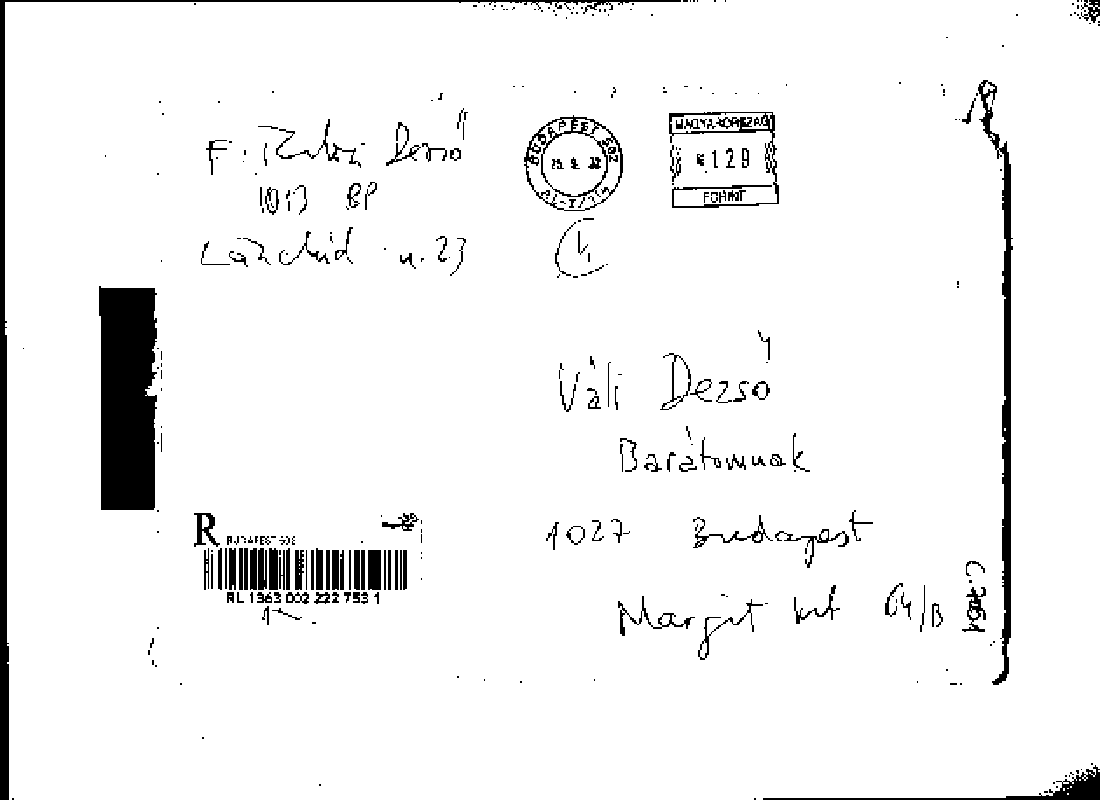 F. Dezső
1013 BP
Lánchíd u. 23
BUDAPEST 502
MAGYARORSZÁG
129
FORINT
Váli Dezső
Barátomnak
1027 Budapest
Margit krt 64/B
R BUDAPEST 502
RL 1363 002 222 753 1